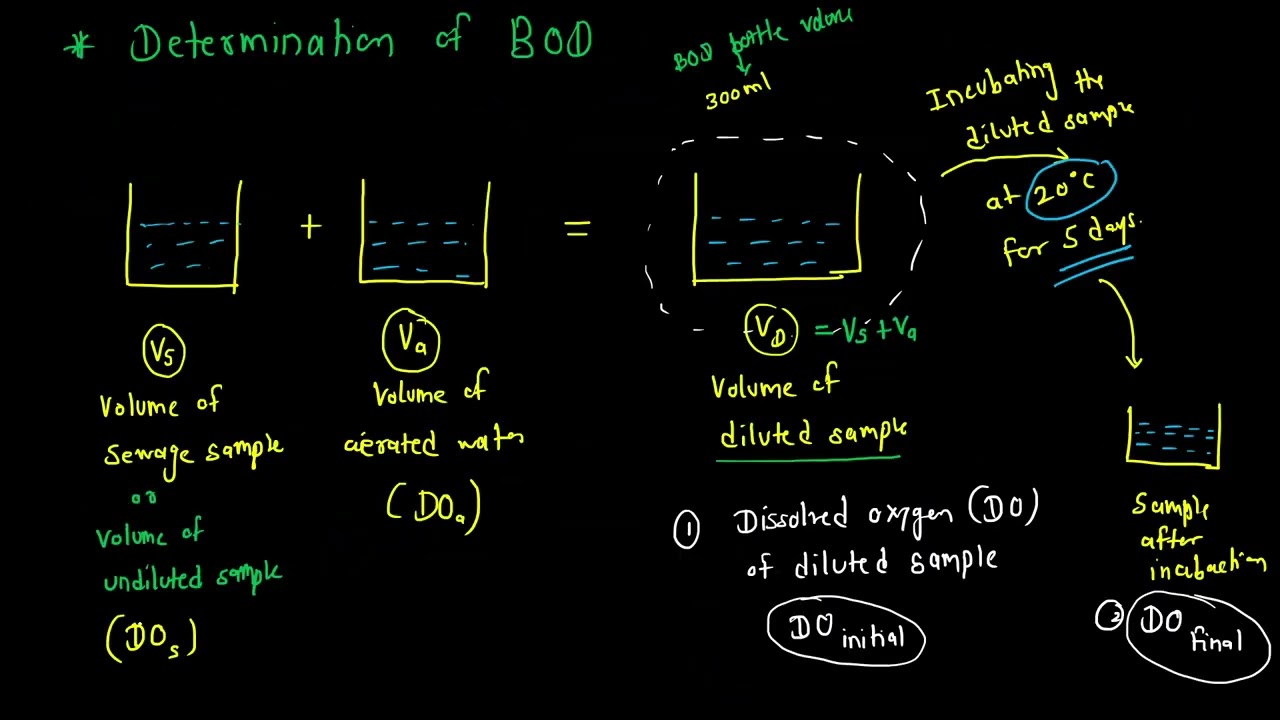 * Determination of BOD
BOD bottle volume
300ml
Incubating the
diluted sample
at 20°C
for 5 days.
+
=
Vs
Va
VD = Vs + Va
Volume of
sewage sample
or
Volume of
undiluted sample
(DOs)
Volume of
aerated water
(DOa)
Volume of
diluted sample
① Dissolved oxygen (DO)
of diluted sample
DO initial
Sample
after
incubation
② DO final